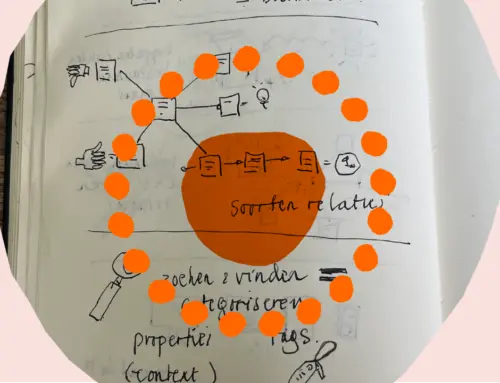 soorten relaties
zoeken & vinden =
categoriseren
properties Tags.
(context)